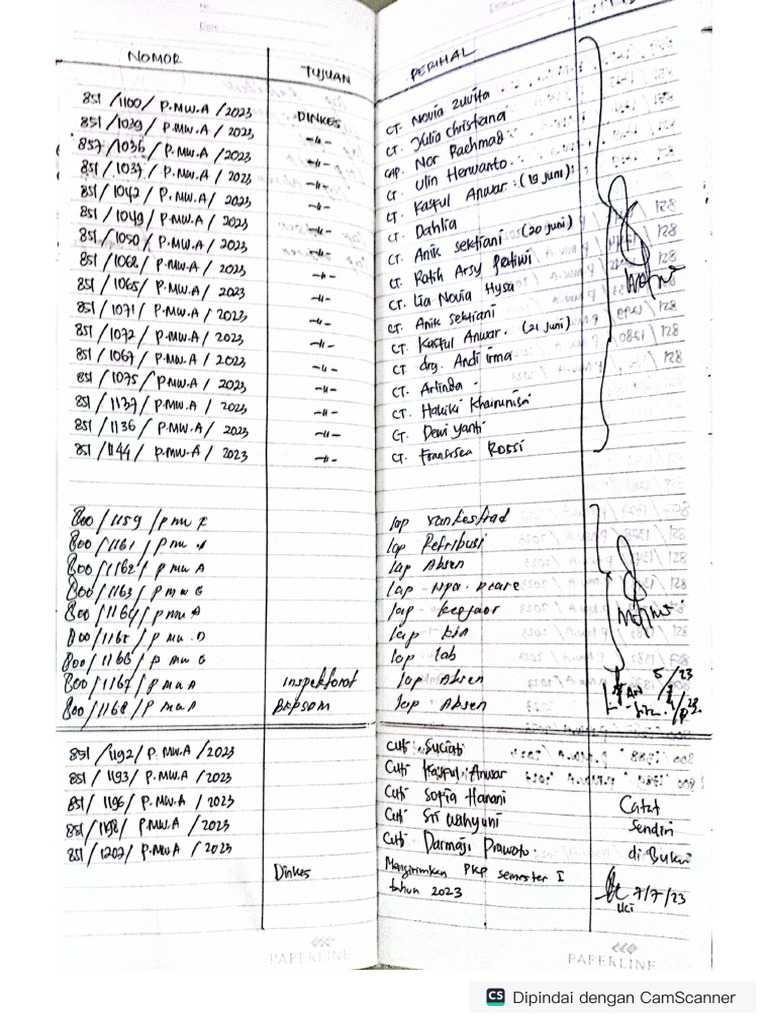 NOMOR TUJUAN PERIHAL
851 / 1100 / P.MW.A / 2023 DINKES CT. Novia Zuvita
851 / 1039 / P.MW.A / 2023 -"- CT. Yulia Christiana
857 / 1036 / P.MW.A / 2023 -"- CAP. Nor Rachmad
851 / 1037 / P.MW.A / 2023 -"- CT. Ulin Herwanto.
851 / 1042 / P.MW.A / 2023 -"- CT. Kasful Anwar (19 Juni)
851 / 1049 / P.MW.A / 2023 -"- CT. Dahlia
851 / 1050 / P.MW.A / 2023 -"- CT. Anik Sektiani (20 juni)
851 / 1068 / P.MW.A / 2023 -"- CT. Ratih Arsy Pratiwi
851 / 1065 / P.MW.A / 2023 -"- CT. Lia Novia Hysa
851 / 1071 / P.MW.A / 2023 -"- CT. Anik Sektiani
851 / 1072 / P.MW.A / 2023 -"- CT. Kasful Anwar. (21 juni)
851 / 1067 / P.MW.A / 2023 -"- CT. drg. Andi irma
851 / 1075 / P.MW.A / 2023 -"- CT. Arlinda
851 / 1137 / P.MW.A / 2023 -"- CT. Hakiki Khairunisa
851 / 1136 / P.MW.A / 2023 -"- CT. Dewi Yanti
851 / 1144 / P.MW.A / 2023 -"- CT. Fransisca Rossi
800 / 1159 / P mw lap Yankestrad
800 / 1161 / P mw A lap Retribusi
800 / 1162 / P mw A lap Absen
800 / 1163 / P mw lap - Npa. pcare
800 / 1164 / P mw A lap -
800 / / P mw lap - kia
800 / 1166 / P mw lap lab
800 / 1167 / P mw A Inspektorat lap Absen
800 / 1168 / P mw A BKPSDM lap Absen
5/23
851 / 1192 / P.MW.A / 2023 Cuti Suciati
851 / 1193 / P.MW.A / 2023 Cuti Kasful Anwar
851 / 1196 / P.MW.A / 2023 Cuti Sofia Hanani
851 / 1198 / P.MW.A / 2023 Cuti Sri Wahyuni
851 / 1202 / P.MW.A / 2023 Cuti Darmaji Prawoto
Catat
Sendiri
di Buku
Dinkes Mengirimkan PKP semester I
tahun 2023
7/7/23
Uci
PAPERLINE
PAPERLINE
CS Dipindai dengan CamScanner